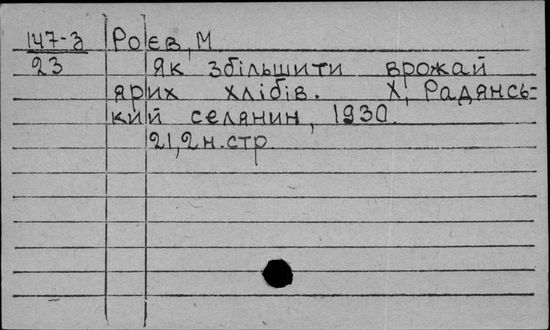 147-з Роєв, М
23 Як збільшити врожай
ярих хлібів. Х, Радянсь-
кий селянин, 1930.
21, 2 н. стр.